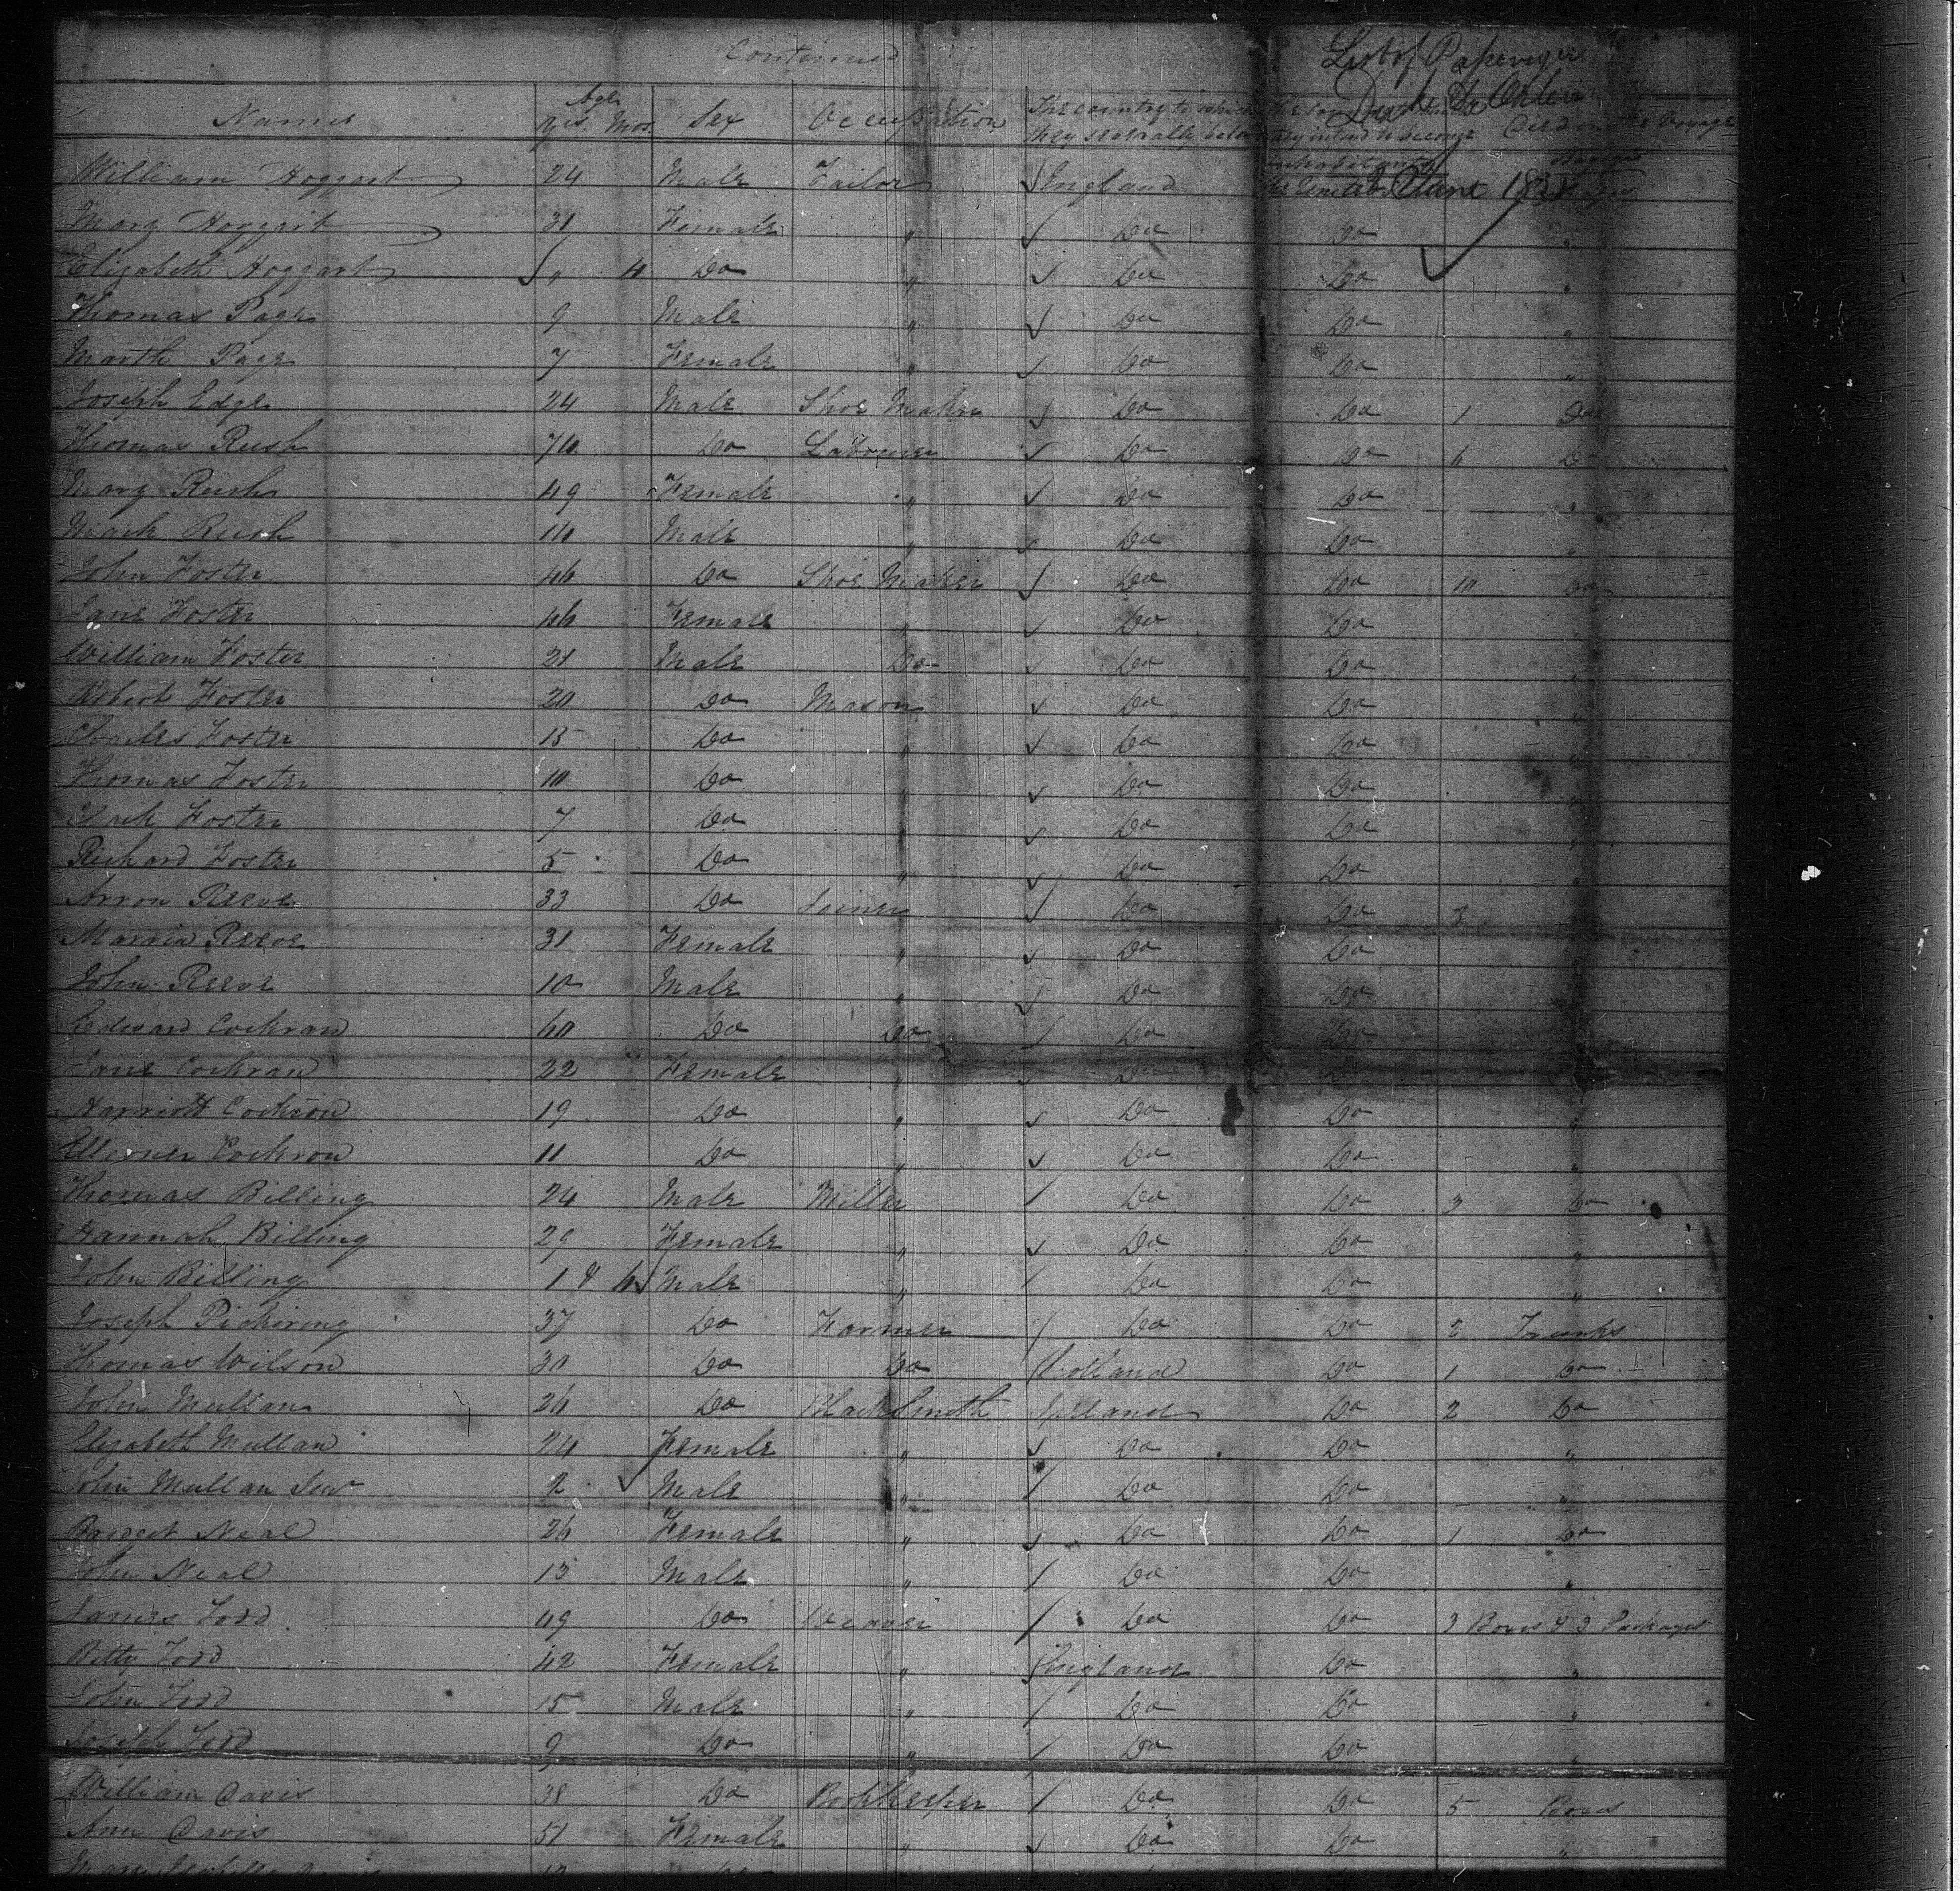 Continued
List of Passengers
Duke D Orleans
Names Age Yrs. Mos. Sex Occupation The country to which they severally belong they intend to become inhabitants Died on the Voyage
William Hoggart 24 Male Tailor England United 183
Mary Hoggart 31 Female " Do Do "
Elizabeth Hoggart " 4 Do " Do Do "
Thomas Page 9 Male " Do Do "
Marth Page 7 Female " Do Do "
Joseph Edge 24 Male Shoe Maker Do Do 1 Do
Thomas Rush Do Labourer Do Do 6 Do
Mary Rush 49 Female " Do Do "
Mark Rush Male " Do Do "
John Foster 46 Do Shoe Maker Do Do 10 Do
Jane Foster 46 Female " Do Do "
William Foster 21 Male Do Do Do "
Robert Foster 20 Do Mason Do Do "
Charles Foster 15 Do " Do Do "
Thomas Foster 10 Do " Do Do "
Foster 7 Do " Do Do "
Richard Foster 5 Do " Do Do "
Arron Reeve 33 Do Joiner Do Do
Marria Reeve 31 Female " Do Do "
John Reeve 10 Male " Do Do "
Edward Cockran 60 Do Do Do Do "
Jane Cockran 22 Female " Do Do
Harriott Cockron 19 Do " Do Do "
Cockron 11 Do " Do Do "
Thomas Billing 24 Male Miller Do Do 3 Do
Hannah Billing 29 Female " Do Do "
John Billing 1 & Male " Do Do "
Joseph Pickering 37 Do Farmer Do Do 2 Trunks
Thomas Wilson 30 Do Do Scotland Do 1 Do
John Mullan 26 Do BlackSmith Ireland Do 2 Do
Elizabeth Mullan 24 Female " Do Do "
John Mullan Jun 2 Male " Do Do "
Bridget Neal 26 Female " Do Do 1 Do
John Neal 13 Male " Do Do "
James Todd 49 Do Weaver Do Do 3 Boxes & 3 Packages
Betty Todd 42 Female " England Do "
John Todd 15 Male " Do Do "
Joseph Todd 9 Do " Do Do "
William Davis 38 Do Bookkeeper Do Do 5 Boxes
Ann Davis 51 Female " Do Do "